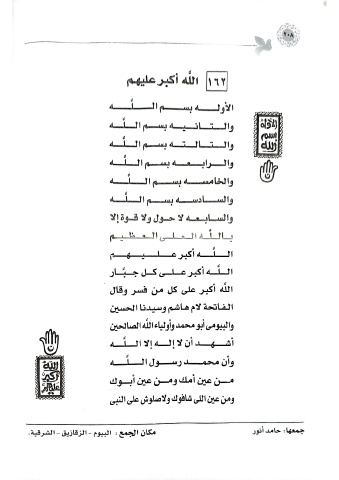 ٢٠٨
١٦٢ الله أكبر عليهم
الأوله بسم اللَّه
والتانيه بسم اللَّه
والتالته بسم اللَّه
والرابعه بسم اللَّه
والخامسه بسم اللَّه
والسادسه بسم اللَّه
والسابعه لا حول ولا قوة إلا
باللَّه العلى العظيم
اللَّه أكبر عليهم
اللَّه أكبر على كل جبَّار
الله أكبر على كل من فسر وقال
الفاتحة لام هاشم وسيدنا الحسين
والبيومى أبو محمد وأولياء الله الصالحين
أشهد أن لا إله إلا اللَّه
وأن محمد رسول اللَّه
من عين أمك ومن عين أبوك
ومن عين اللى شافوك ولاصلوش على النبى
الأوله
بسم
الله
الله
أكبر
عليهم
جمعها: حامد أنور
مكان الجمع: البيوم - الزقازيق - الشرقية.